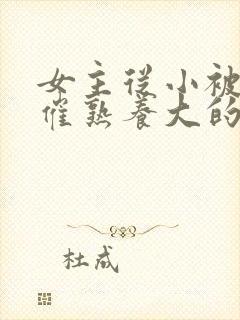 女主从小被
催熟养大的
杜成